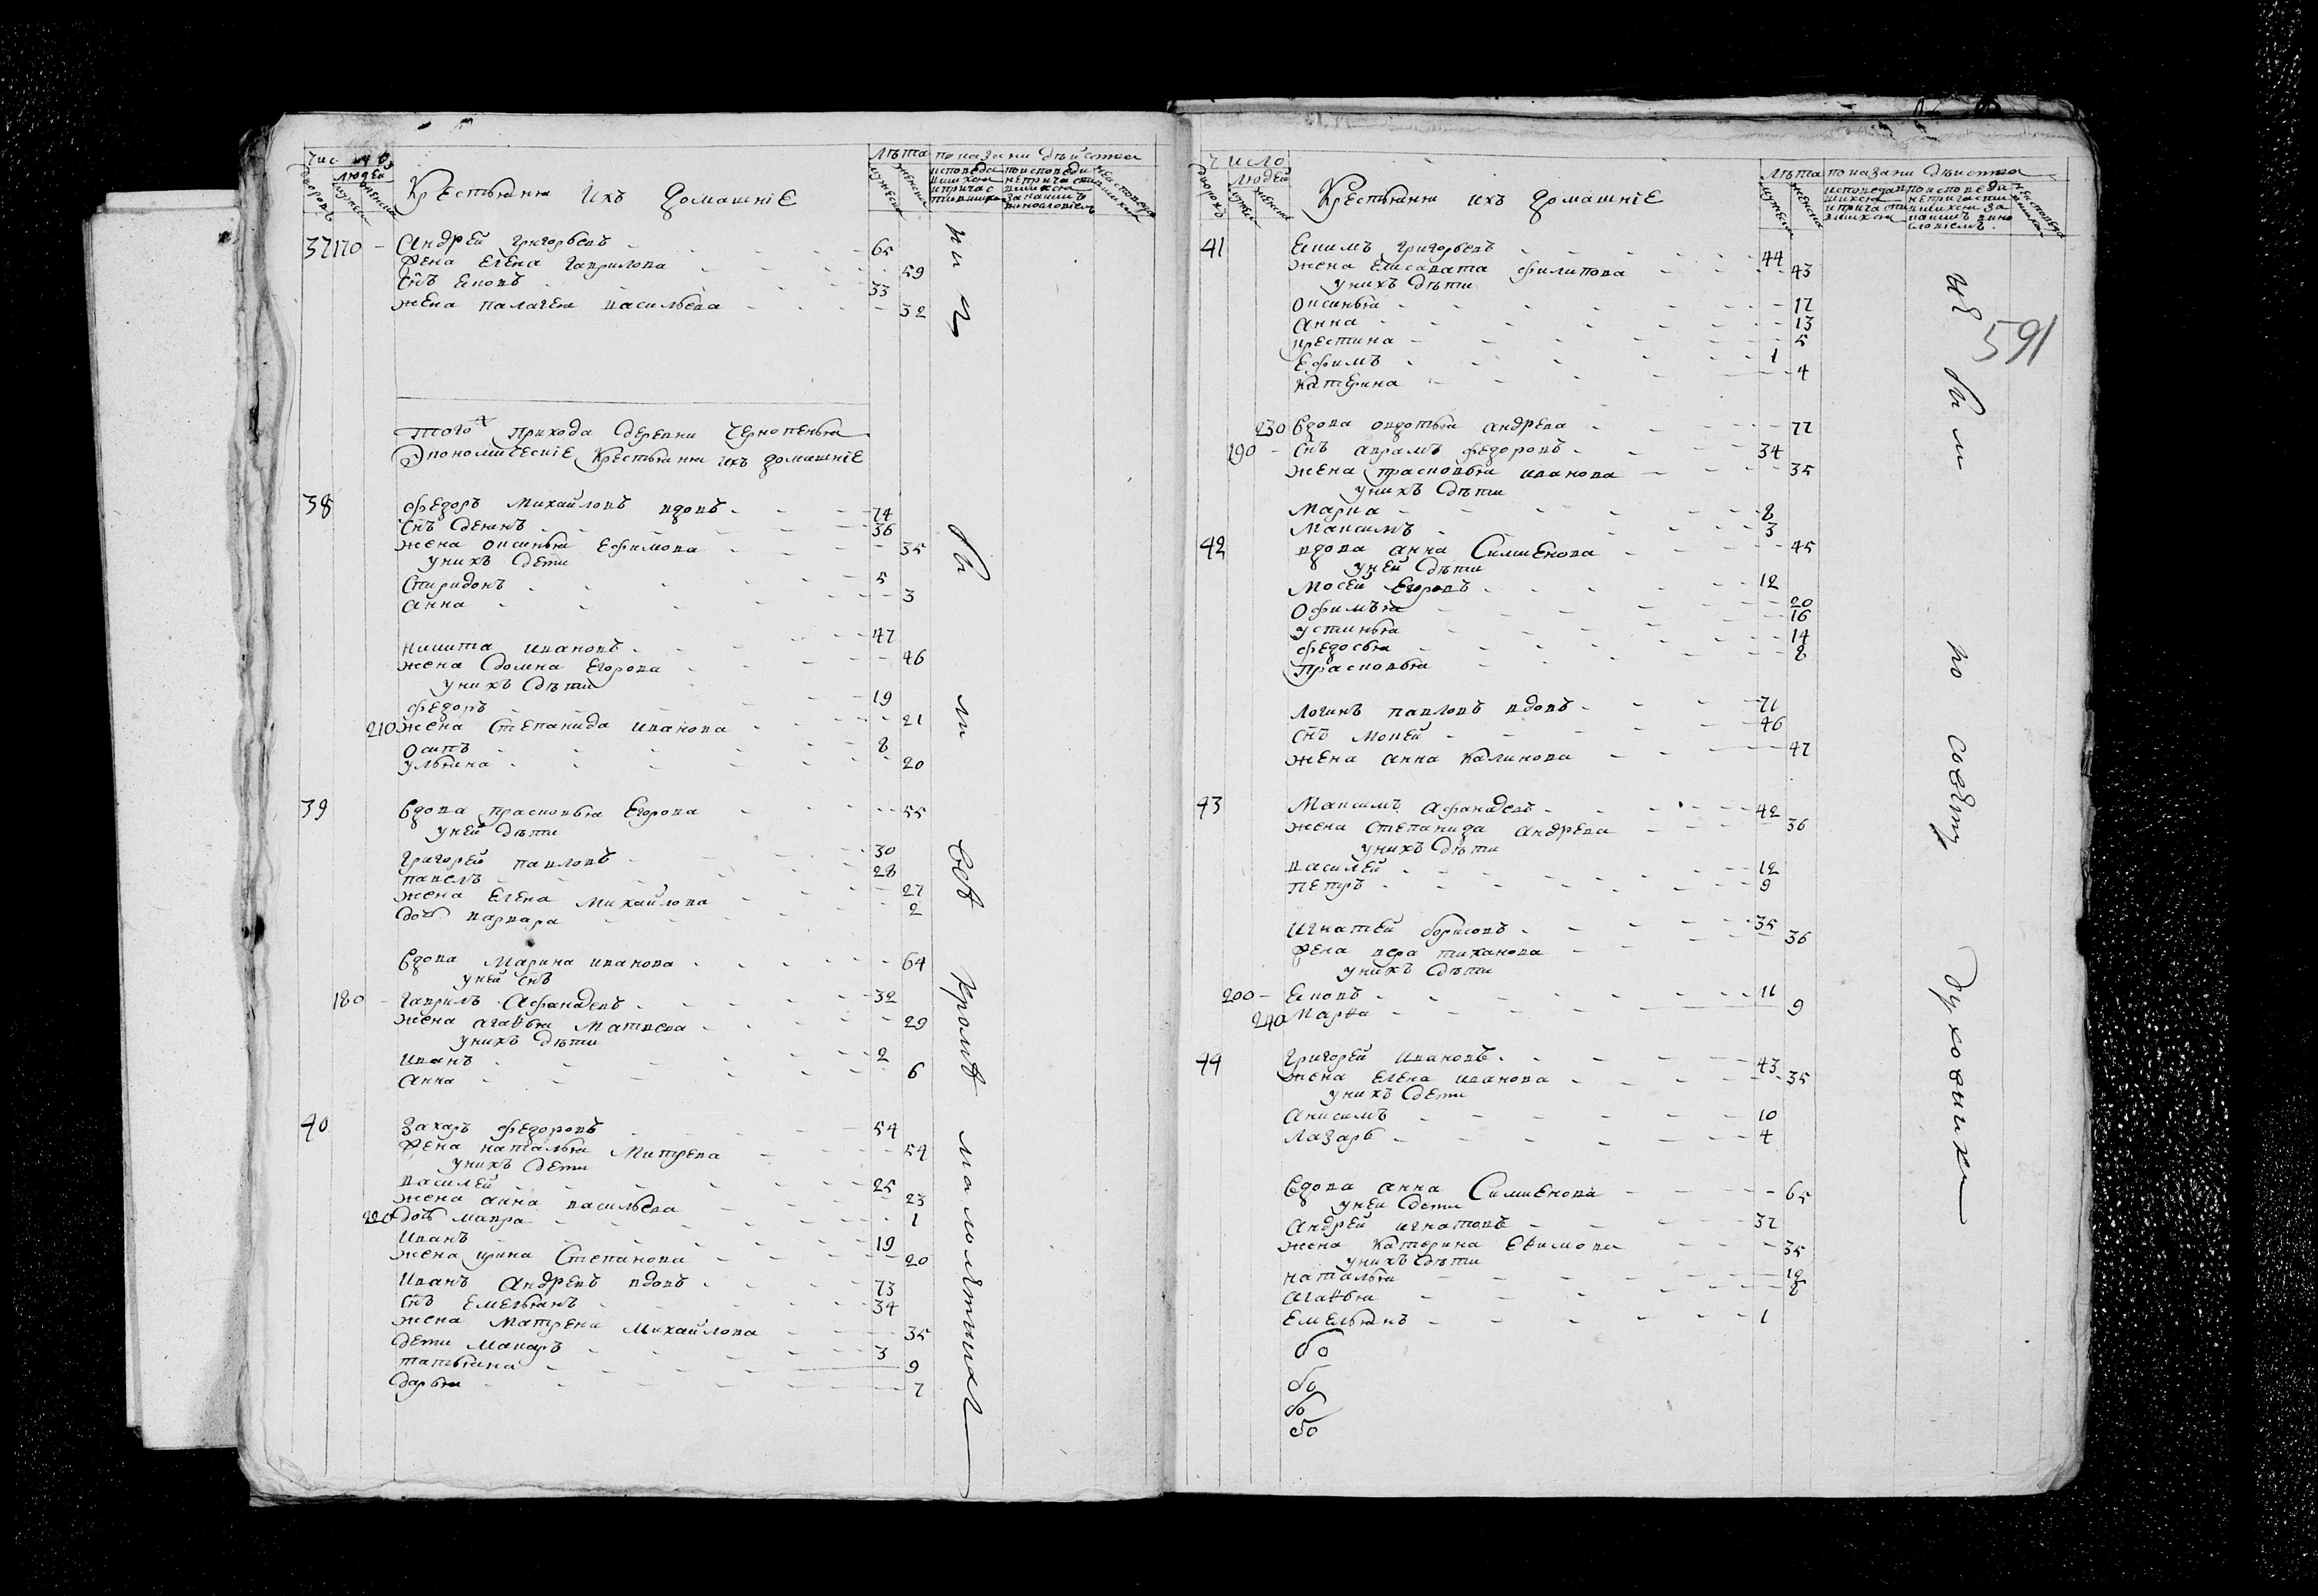 Число
людей
дворовъ
мужеска
женска
Крестьяня ихъ домашніе
Лѣта
мужеска
женска
показани дѣйства
37 170 - Андрей григорьевъ 65
Жена Елена гаврилова 59
Сн҃ъ Яковъ 33
жена палагея васильева 32
Того ж прихода деревни Чернопенья
Экономическіе Крестьяня ихъ домашніе
38 федоръ михайловъ вдовъ 74
Сн҃ъ Демянъ 36
жена оксинья Ефимова 35
у нихъ дети
Спиридонъ 5
анна 3
никита ивановъ 47
жена домна Егорова 46
у нихъ дѣти
федоръ 19
210 жена Степанида иванова 21
Осипъ 8
ульяна 20
39 Вдова прасковья Егорова 55
у ней дѣти
григорей павловъ 30
павелъ 28
жена Елена михайлова 27
дочь варвара 2
Вдова Марина иванова 64
у ней сн҃ъ
180 - гаврилъ Афанасевъ 32
жена агаѳья Матвеева 29
у нихъ дѣти
иванъ 2
анна 6
40 Захаръ федоровъ 54
Жена наталья Митрева 54
у нихъ дети
василей 25
жена анна васильева 23
220 дочь мавра 1
иванъ 19
жена ирина Степанова 20
иванъ Андревъ вдовъ 73
сн҃ъ Емельянъ 34
жена матрена михайлова 35
дети макаръ 3
татьяна 9
дарья 7
ни х
бы ли всѣ Кромѣ малолѣтныхъ
Число
людей
дворовъ
мужеска
женска
Крестьяня ихъ домашніе
Лѣта
мужеска
женска
показани дѣиства
591
41 Якимъ григорьевъ 44
жена Елисавата филипова 43
у нихъ дѣти
оксинья 17
анна 13
крестина 5
Ефимъ 1
катерина 4
230 Вдова овдотья андрева 77
190 - Сн҃ъ аврамъ федоровъ 34
жена прасковья иванова 35
у нихъ дѣти
Марка 8
Максимъ 3
42 вдова анна Симиенова 45
у ней дѣти
мосей Егоровъ 12
Офимья 20
устинья 16
федосья 14
Прасковья 8
логинъ павловъ вдовъ 71
сн҃ъ мокей 46
жена анна калинова 47
43 Максимъ афанасевъ 42
жена степанида андрева 36
у нихъ дѣти
василей 12
петръ 9
игнатей борисовъ 35
Жена вера тиханова 36
у нихъ дѣти
200 - Яковъ 11
240 Марѳа 9
44 григорей ивановъ 43
жена Елена иванова 35
у нихъ дети
анисимъ 10
лазарь 4
Вдова анна Симиенова 65
у ней дети
андрей игнатовъ 37
жена катерина Еѳимова 35
у нихъ дѣти
наталья 12
агаѳья 8
Емельянъ 1
не были по совѣту духовнику